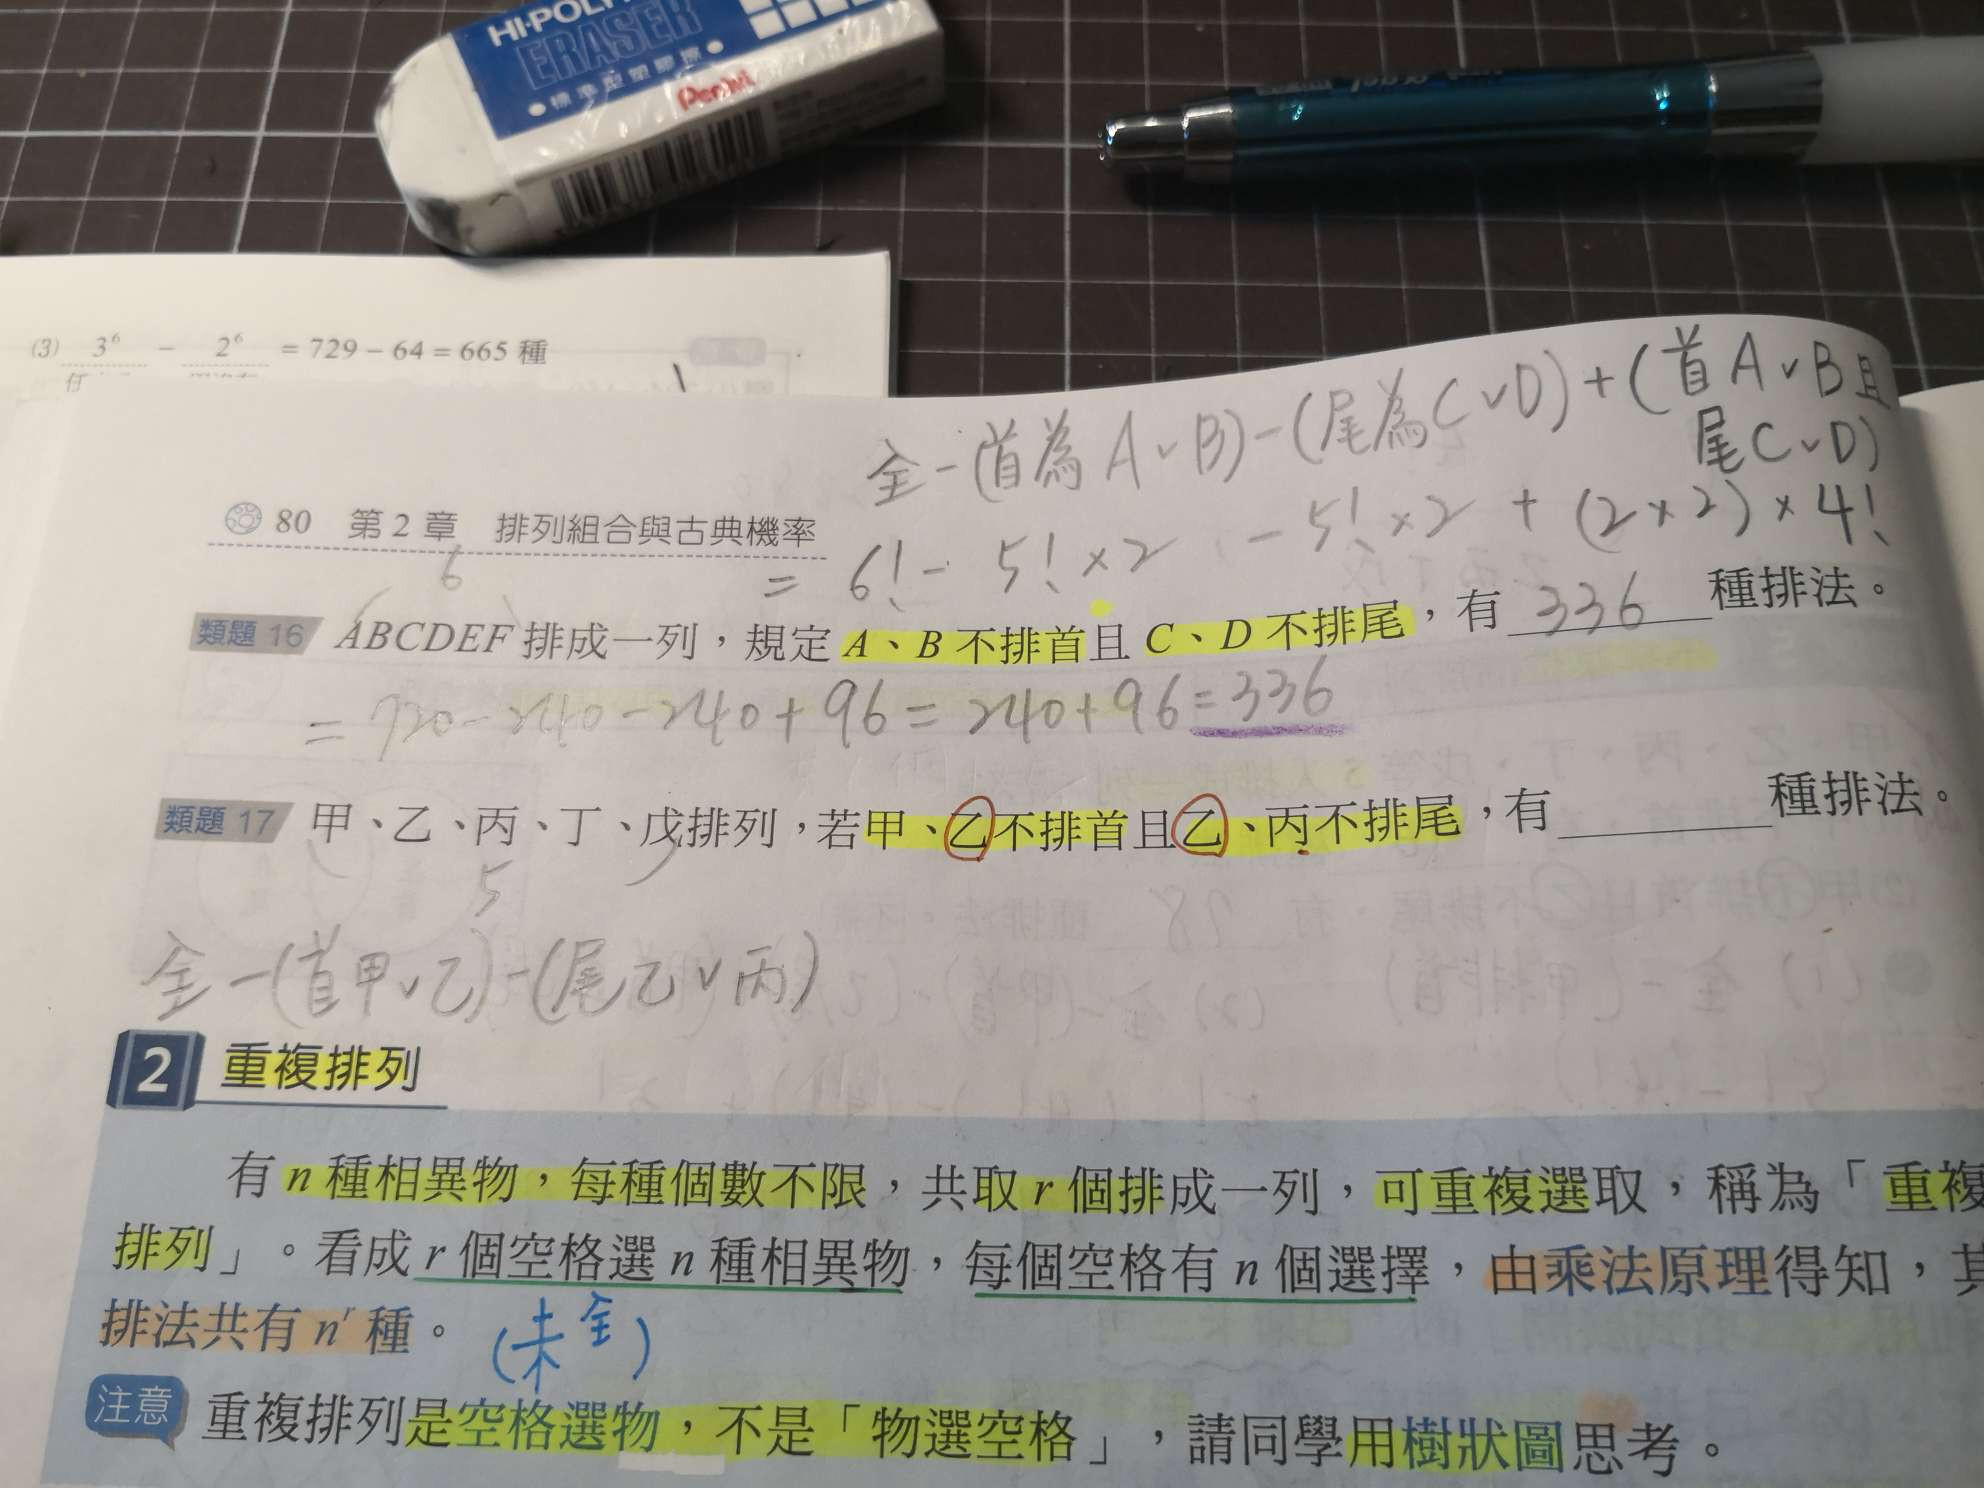 HI-POLY
ERASER
●標準型塑膠擦●
Pentel
(3) 3⁶ − 2⁶ = 729 − 64 = 665 種
全-(首為A∨B)-(尾為C∨D)+(首A∨B且
尾C∨D)
80 第2章 排列組合與古典機率
= 6! - 5!×2 - 5!×2 + (2×2)×4!
6
類題 16 ABCDEF 排成一列，規定 A、B 不排首且 C、D 不排尾，有 336 種排法。
= 720-240-240+96=240+96=336
類題 17 甲、乙、丙、丁、戊排列，若甲、乙不排首且乙、丙不排尾，有 種排法。
5
全-(首甲∨乙)-(尾乙∨丙)
2 重複排列
有 n 種相異物，每種個數不限，共取 r 個排成一列，可重複選取，稱為「重複
排列」。看成 r 個空格選 n 種相異物，每個空格有 n 個選擇，由乘法原理得知，其
排法共有 nʳ 種。(未全)
注意 重複排列是空格選物，不是「物選空格」，請同學用樹狀圖思考。